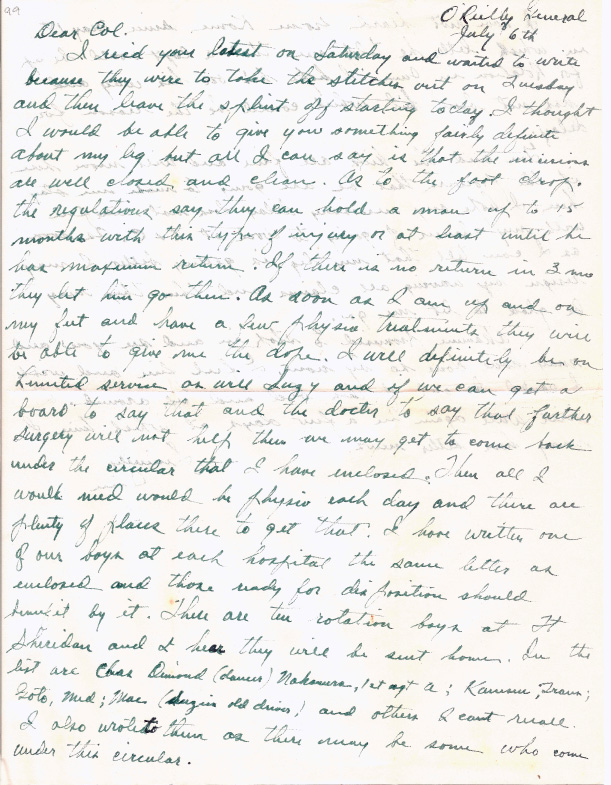 99
O'Reilly General
July 6th
Dear Col.
I recd your latest on Saturday and waited to write
because they were to take the stitches out on Tuesday
and then leave the splint off starting today. I thought
I would be able to give you something fairly definite
about my leg but all I can say is that the incisions
are well closed and clean. As to the foot drop.
the regulations say they can hold a man up to 15
months with this type of injury or at least until he
has maximum return. If there is no return in 3 mo
they let him go then. As soon as I am up and on
my feet and have a few physio treatments they will
be able to give me the dope. I will definitely be on
Limited service as will Suzy and if we can get a
board to say that and the doctor to say that further
surgery will not help then we may get to come back
under the circular that I have enclosed. Then all I
would need would be physio each day and there are
plenty of places there to get that. I have written one
of our boys at each hospital the same letter as
enclosed and those ready for disposition should
benefit by it. There are ten rotation boys at Ft
Sheridan and I hear they will be sent home. In the
list are Chas Dimond (dancer) Nakamura, 1st sgt A; Kammu, Trans;
Goto, Med; Mac ( old driver) and others I cant recall.
I also wrote to them as there may be some who come
under this circular.